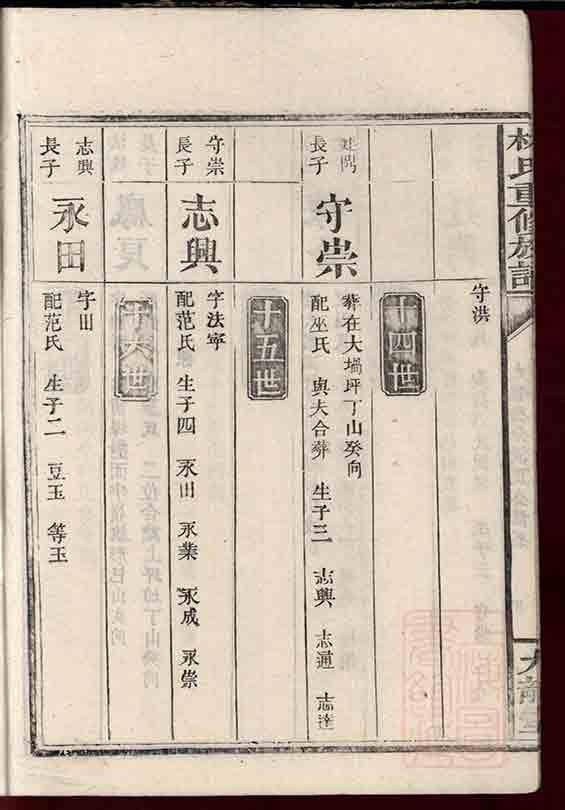 林氏重修族譜
守洪
十四世
建閂
長子
守崇
葬在大塥坪丁山癸向
配巫氏 與夫合葬 生子三 志興 志通 志達
十五世
守崇
長子
志興
字法寧
配范氏 生子四 永田 永業 永成 永崇
十六世
志興
長子
永田
字田
配范氏 生子二 豆玉 等玉